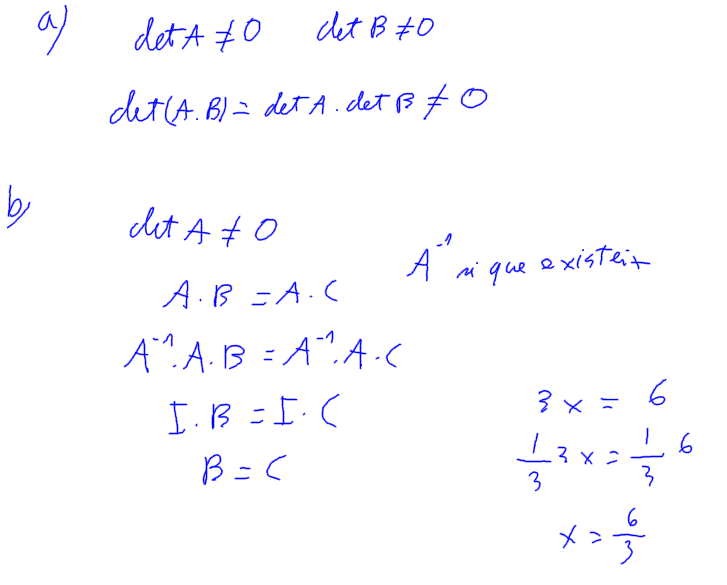 a) det A ≠ 0 det B ≠ 0
det(A.B) = det A . det B ≠ 0
b) det A ≠ 0
A⁻¹ si que existeix
A.B = A.C
A⁻¹.A.B = A⁻¹.A.C
I.B = I.C
B = C
3x = 6
1/3 3x = 1/3 6
x = 6/3